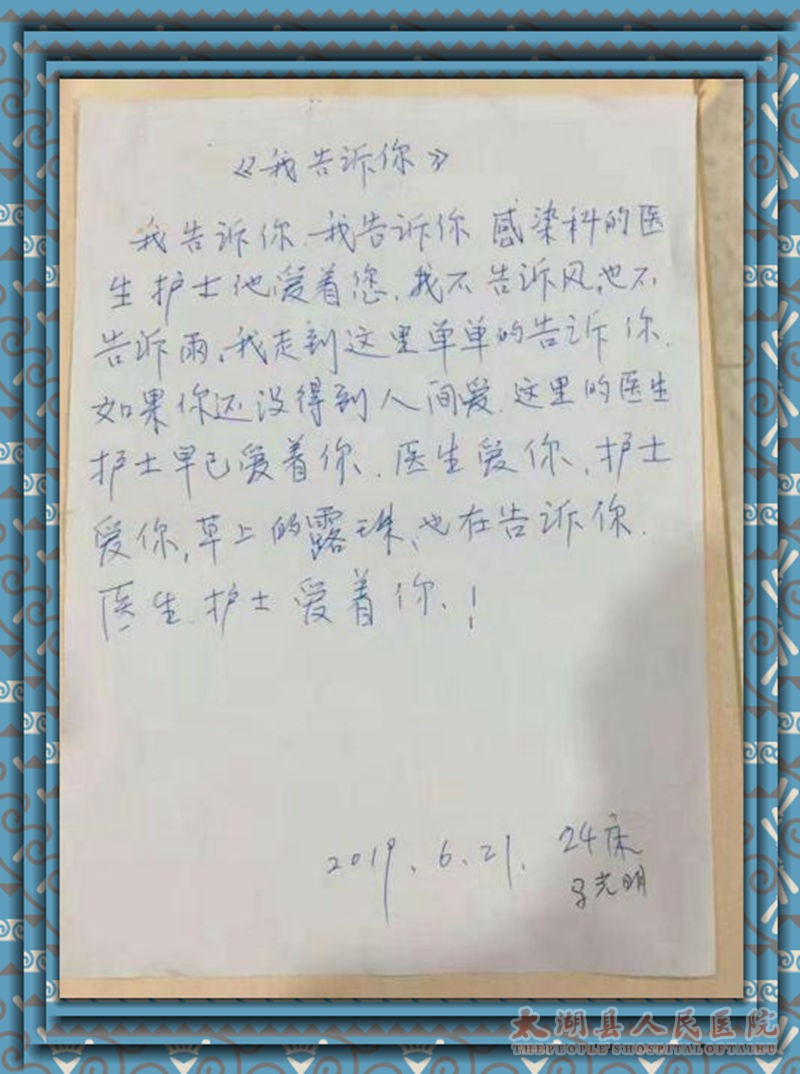 《我告诉你》
我告诉你、我告诉你 感染科的医
生护士他爱着您、我不告诉风,也不
告诉雨、我走到这里单单的告诉你、
如果你还没得到人间爱、这里的医生
护士早已爱着你、医生爱你、护士
爱你,草上的露珠、也在告诉你、
医生、护士爱着你、!
2019.6.21. 24床
光明
太湖县人民医院
THE PEOPLE'S HOSPITAL OF TAIHU